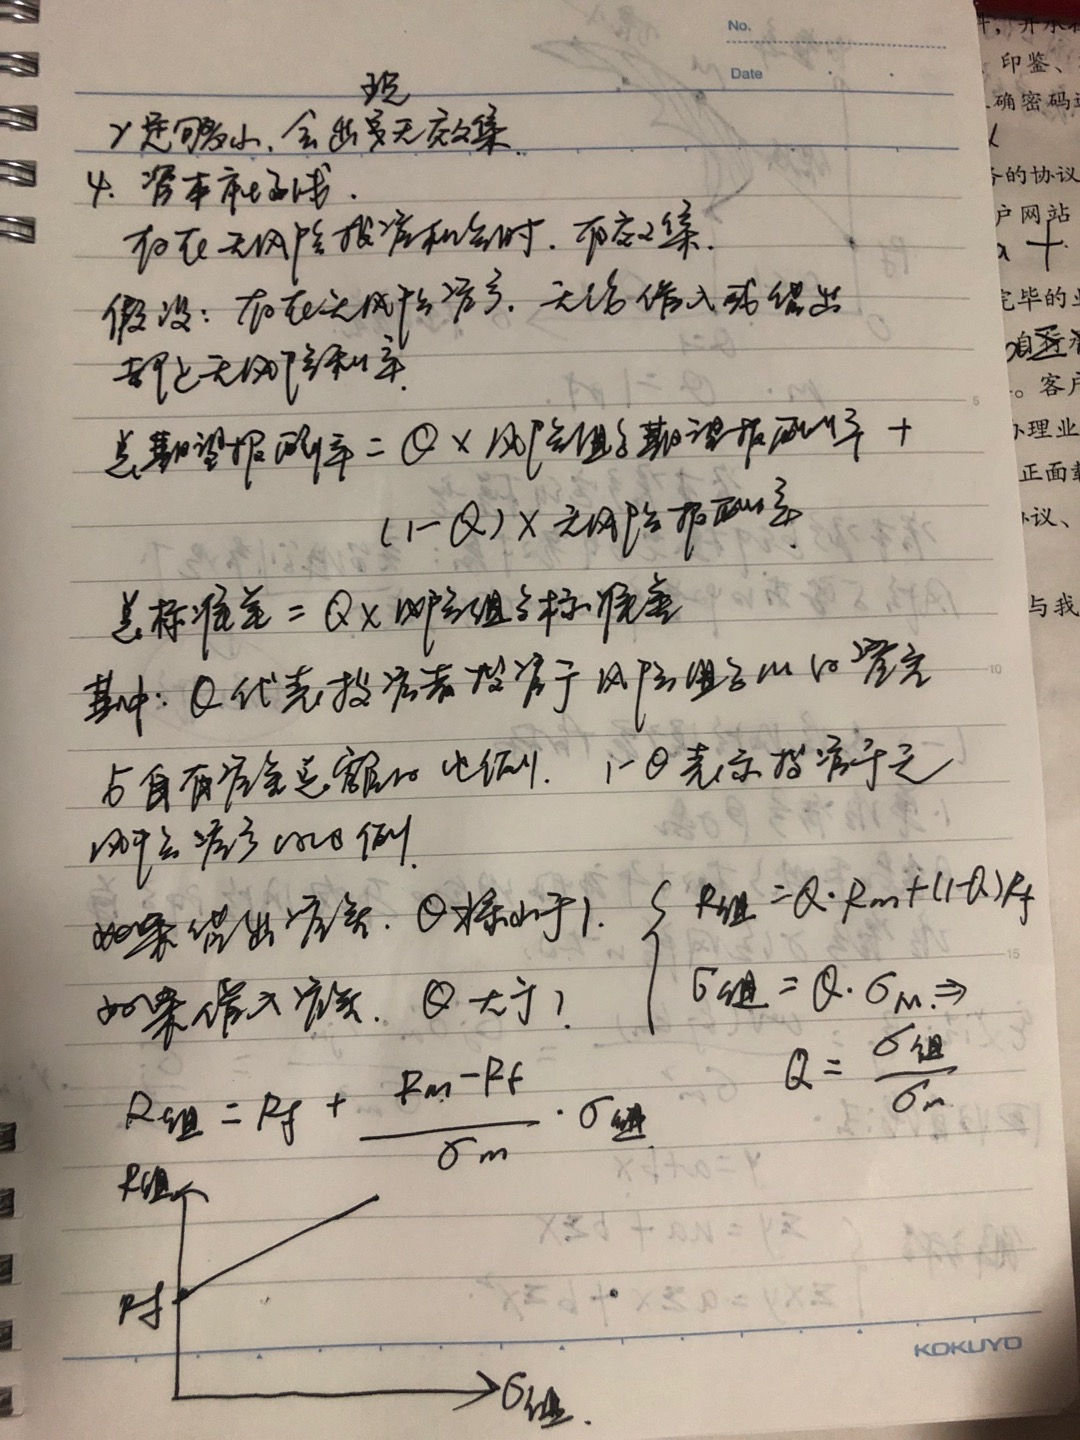 No.
Date
现
r足够小,会出 无效集
4. 资本市场线.
存在无风险投资机会时.有效集.
假设:存在无风险资产.无论借入或借出
都是无风险利率.
总期望报酬率=Q×风险组合期望报酬率+
(1-Q)×无风险报酬率.
总标准差=Q×风险组合标准差
其中:Q代表投资者投资于风险组合M的资金
占自有资金总额的比例. 1-Q表示投资于无
风险资产的比例.
如果借出资金.Q将小于1.
R组=Q·Rm+(1-Q)Rf
如果借入资金.Q大于1.
σ组=Q·σM⇒
Q=σ组/σm
R组=Rf+(Rm-Rf)/σm·σ组
R组
Rf
σ组.
KOKUYO
5
10
15
印鉴、
确密码
务的协议
户网站
完毕的业
。客户
办理业
正面
协议、
与我